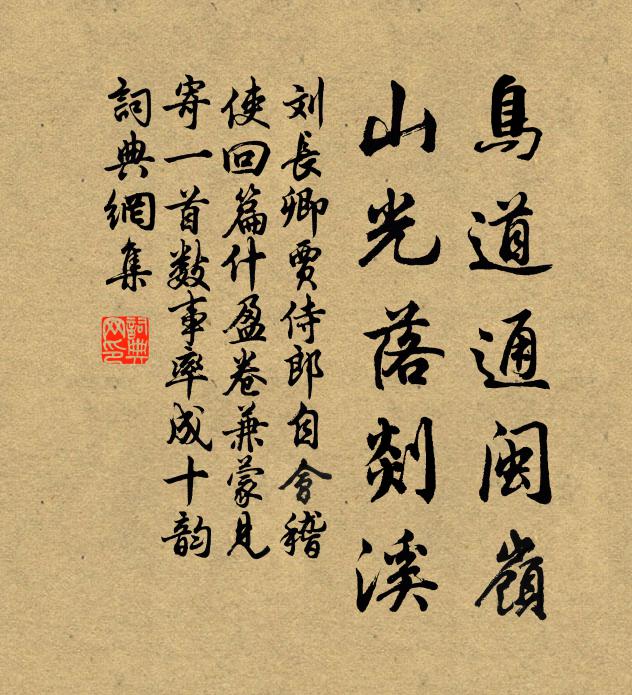 鳥道通閩嶺
山光落剡溪
刘長卿賈侍郎自會稽
使回篇什盈卷兼蒙見
寄一首数事率成十韵
詞典網集
詞典网印